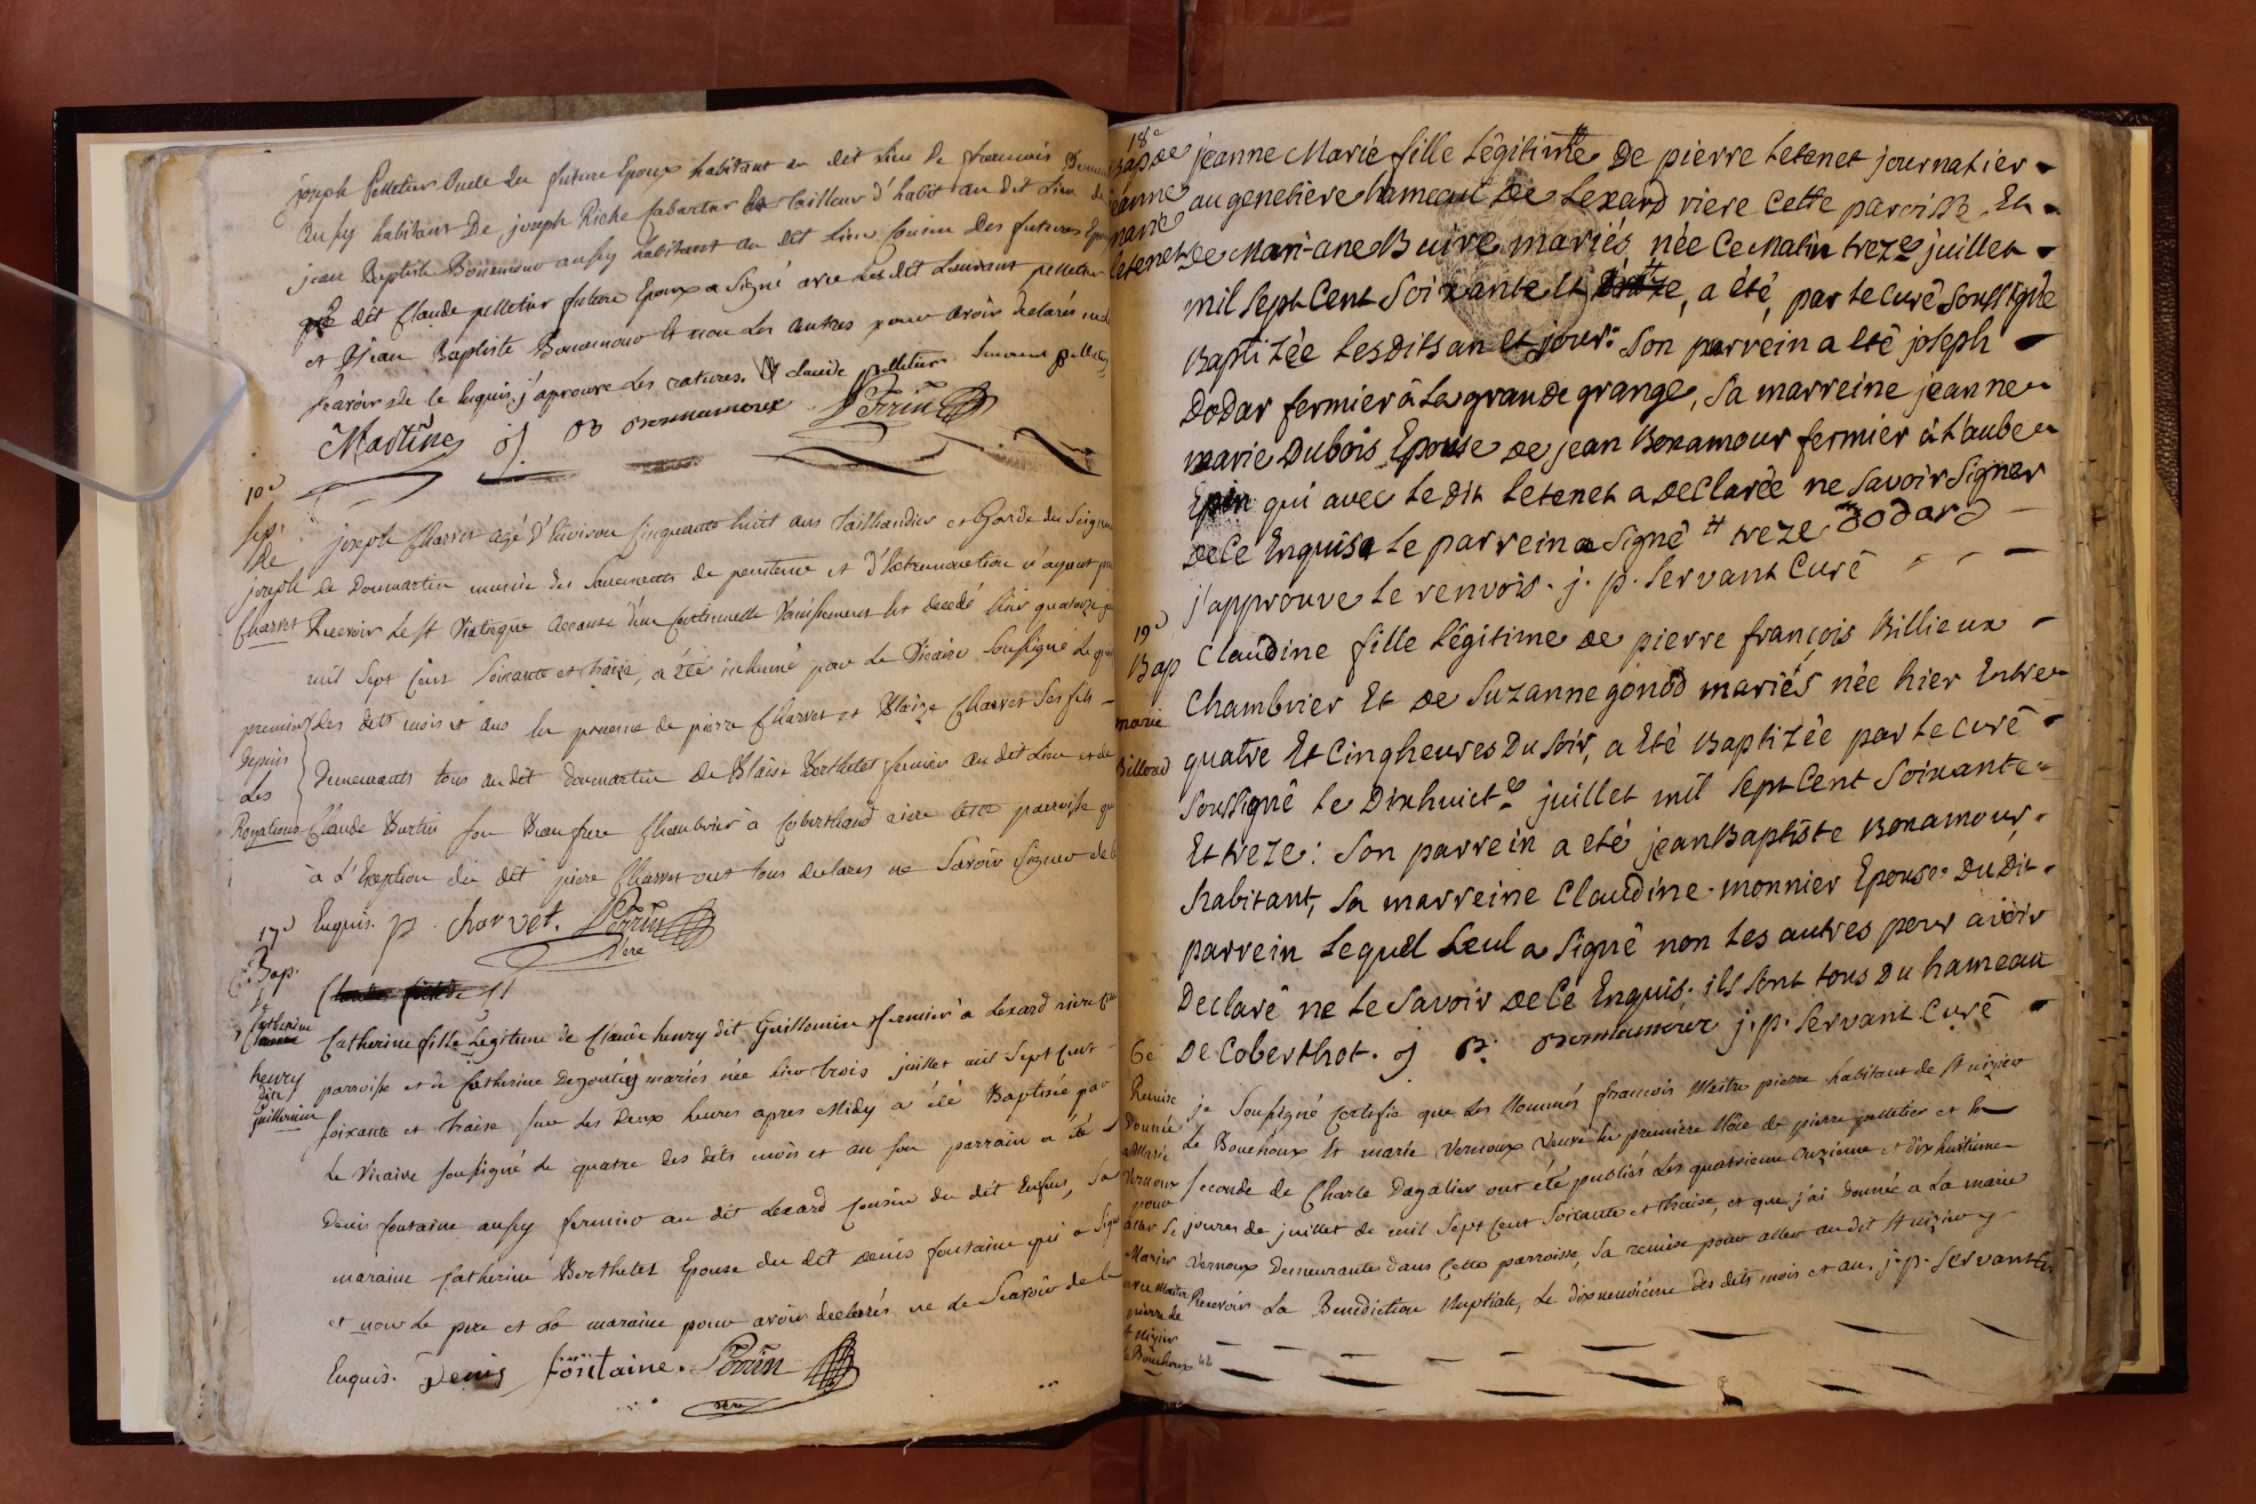 joseph pelletier oncle du future Epoux habitant au dit Lieu de francois
aussy habitant De joseph Riche Cabartier tailleur d'habit au dit Lieu de
jean Baptiste Bonamour aussy habitant au dit Lieu Cousin des futures
dit Claude pelletier future Epoux a Signé avec Les dit Laurant pelletier
et jean Baptiste Bonamour Et non Les autres pour avoir declarés ne
sçavoir de le Enquis. j'aprouve Les ratures. Claude pelletier
Perrin
j B Bonnamour
10e
Sep.
de
joseph
Charvet
premier
depuis
Les
Rogations
joseph Charvet agé d'Environ Cinquante huit ans taillandier et Garde du
de Donmartin munie des Sacements de penitence et d'Extremonction n'ayant pu
Recevoir Le St Viatique acause d'un Continuelle Vomissement Est decedé hier quatorze
mil Sept Cent Soixante et traize, a été inhumé par Le Vicaire Soussigné Le
des dits mois et ans En presence de pierre Charvet et Blaize Charvet Ses fils
Demeurants tous au dit Donmartin de Blaise Berthelet fermier au dit Lieu et de
Claude Burtin Son Beaufrere Chambrier à Coberthoud riere Cette parroisse
à L'Exeption du dit piere Charvet ont tous declarés ne Savoir Signer de
Enquis. p. charvet. Perrin
Vere
17e
Bap.
de
Catherine
henry
dit
Guillemin
Catherine fille Legitime de Claude henry dit Guillemin fermier à Lexard riere
parroisse et de Catherine mariés née hier trois juillet mil Sept Cent
soixante et traise Sur Les deux heures apres Midy a été Baptisée par
Le Vicaire soussigné Le quatre des dits mois et an son parrain a été
Denis fontaine aussy fermier au dit Lexard Cousin du dit Enfant, Sa
maraine Catherine Berthelet Epouse du dit Denis fontaine qui a
et non Le pere et La maraine pour avoir declarés ne le Scavoir de
Enquis. Denis fontaine. Perrin
vere
18e
Bap de
jeanne
marie
letenet
jeanne Marie fille Légitime De pierre Letenet journalier
au genetiere hameau De Lexard riere Cette paroisse. Et
De Mari-ane Buire mariés, née Ce Matin treze juillet
mil Sept Cent Soixante Et, a été, par Le Curé Soussigné
Baptizée Lesdits an Et jour: Son parrein a Eté joseph
Dodar fermier à La grande grange, Sa marreine jeanne
marie Dubois Epouse De jean Bonamour fermier à L'aube
Epin qui avec Le dit Letenet a Declarée ne Savoir Signer
De Ce Enquise Le parrein a Signé # treze dodard
j'approuve Le renvois. j. p. Servant Curé
19e
Bap
marie
Claudine fille Légitime De pierre françois Billieux
Chambrier Et De Suzanne gonod mariés née hier Entre
quatre Et Cinqheures Du Soir, a Eté Baptizée par Le Curé
Soussigné Le Dixhuict juillet mil Sept Cent Soixante
Et treze: Son parrein a eté jean Baptiste Bonamour
habitant, Sa marreine Claudine monnier Epouse Du Dit
parrein Lequel Seul a Signé non Les autres pour avoir
Declaré ne Le Savoir De Ce Enquis. ils Sont tous Du hameau
De Coberthot. j B. Bonnamour j. p. Servant Curé
6e
Remise
Donnée
a Marie
Vernoux
pour
aller Se
Marier
avec Maitre
pierre de
St nizier
Le Bouchoux
je Soussigné Certifie que Les Nommés francois Maitre pierre habitant de St nizier
Le Bouchoux Et marie Vernoux Veuve En premiere Nôce de pierre pelletier et En
Seconde de Charle Dagalier ont été publiés Les quatrieme Onzieme et dix huitieme
joures de juillet de mil Sept Cent Soixante et traise, et que j'ai Donnée a La marie
Vernoux Demeurante dans Cette parroisse, Sa remise pour aller au dit St nizier y
Recevoir La Benediction Nuptiale, Le dix neuvieme des dits mois et an. j. p. Servant